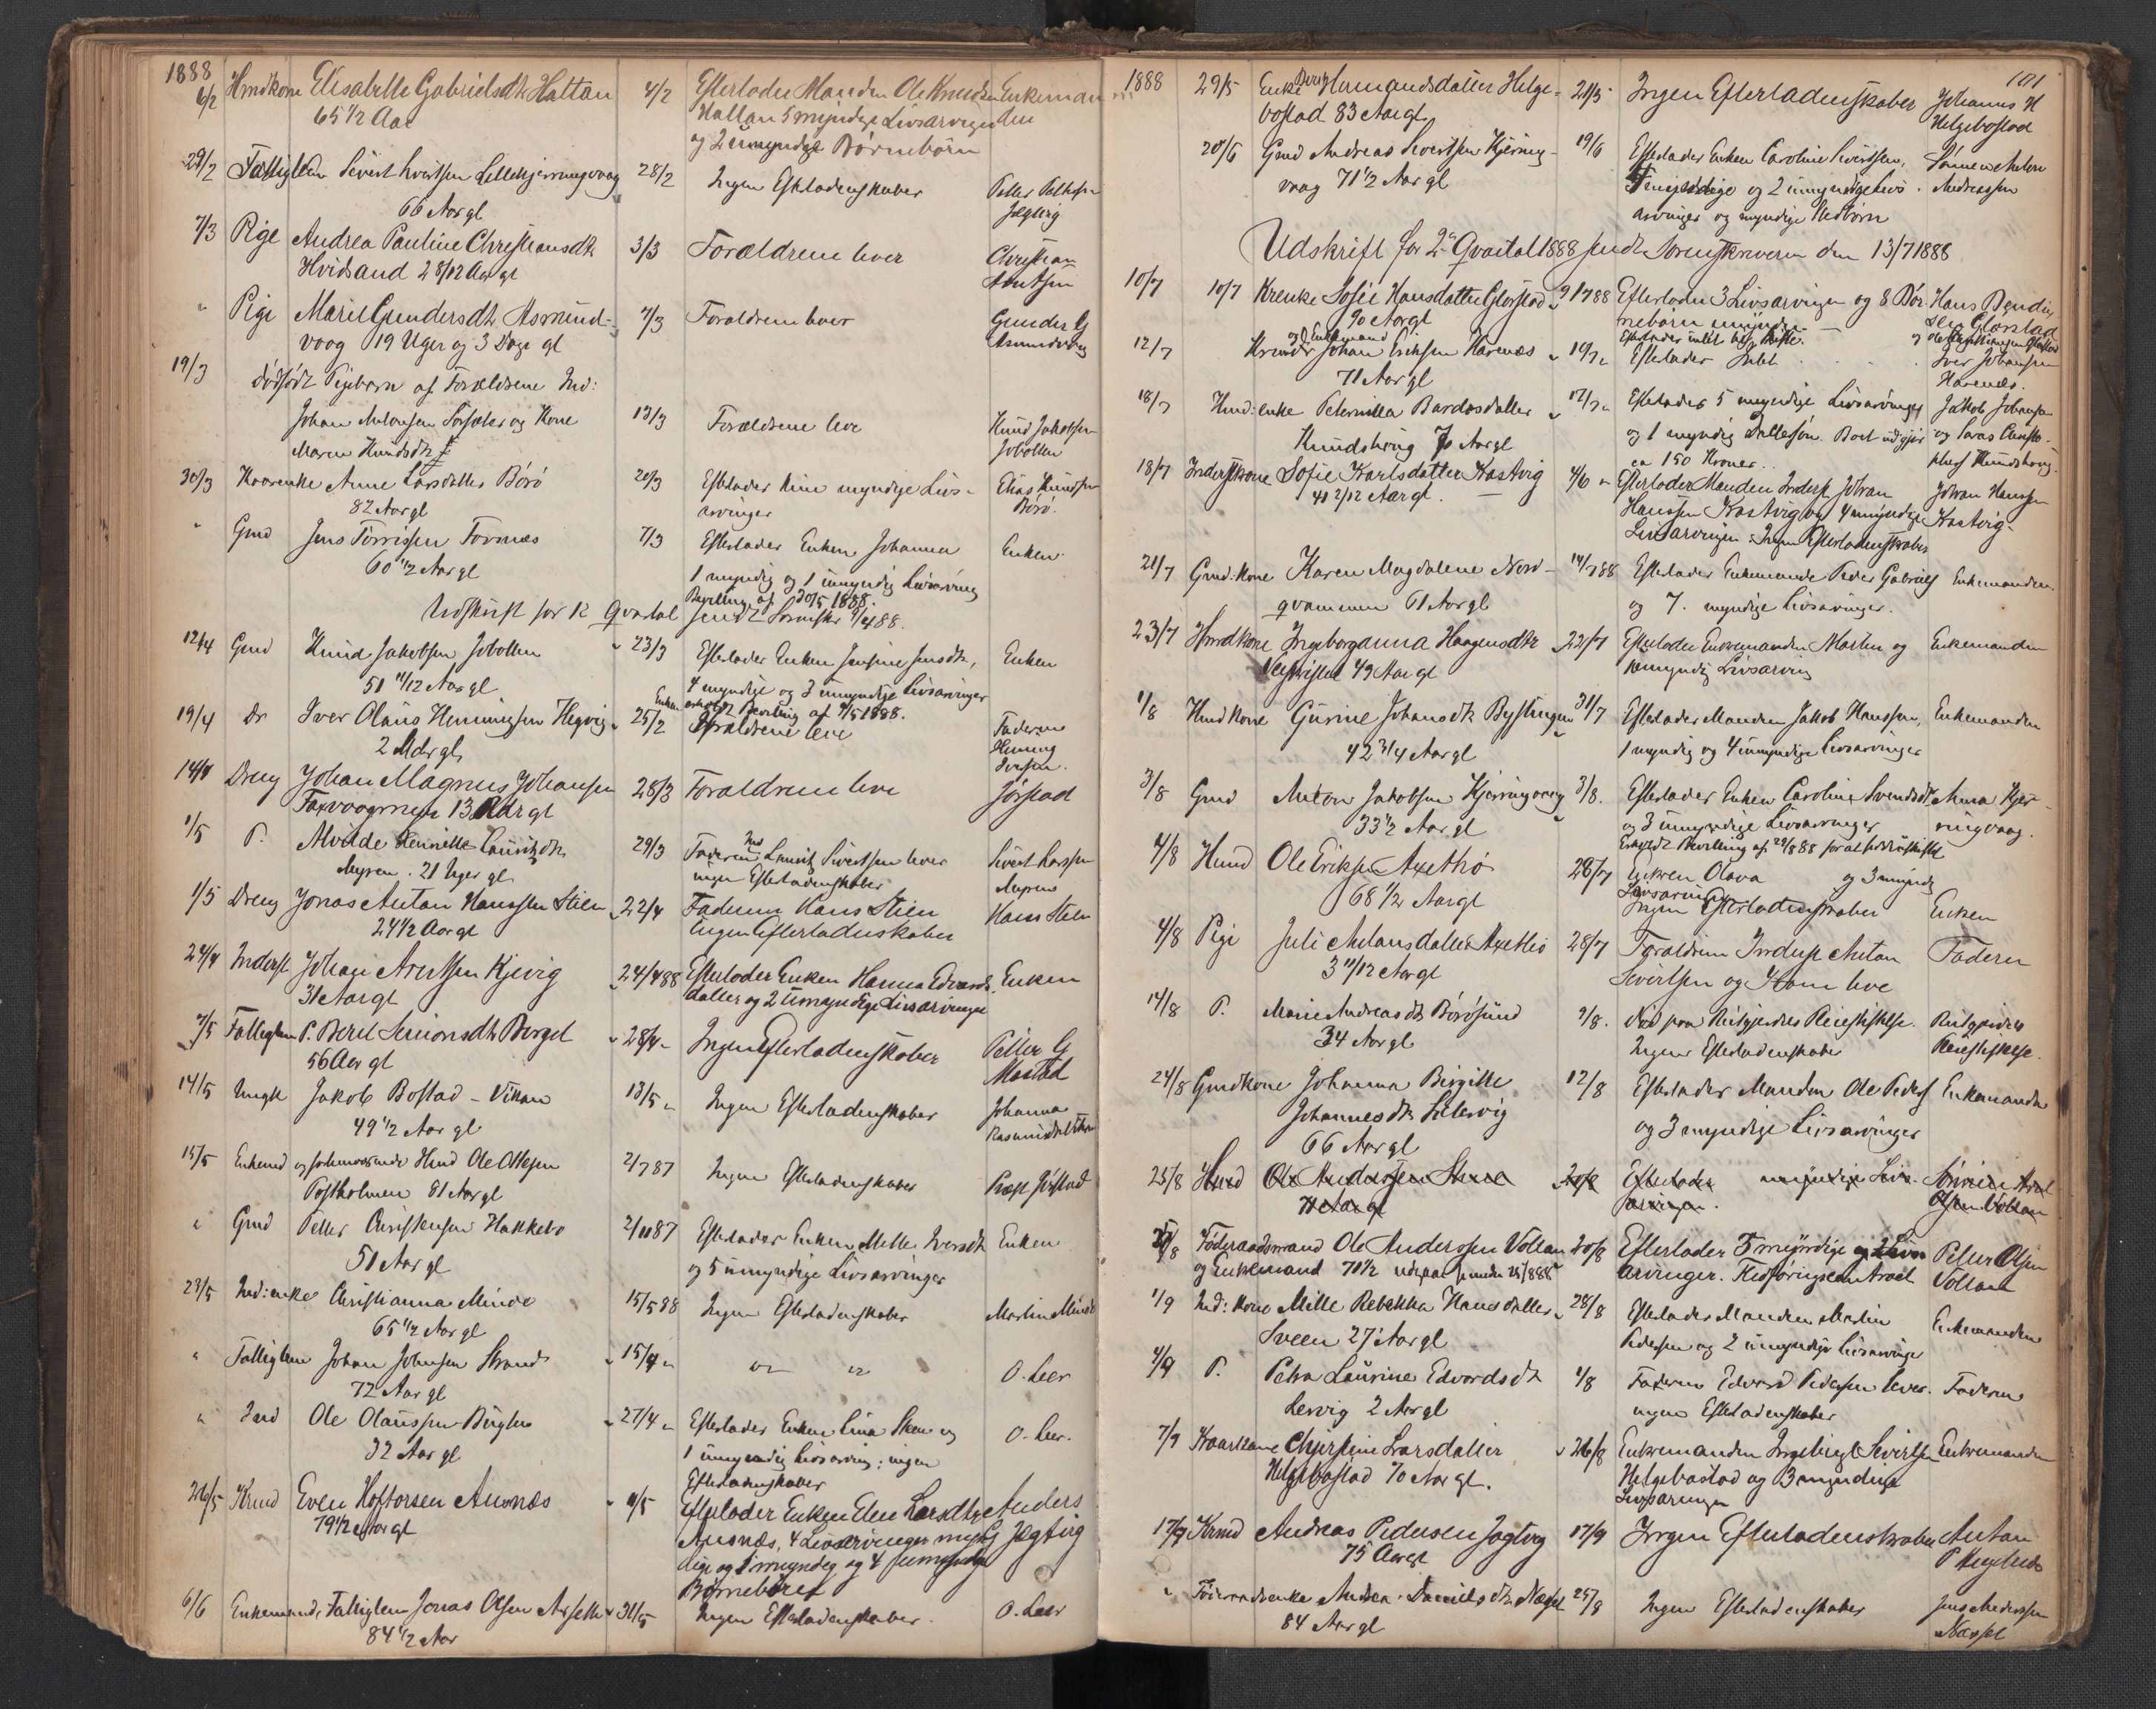 1888
6/2 Hmdkone Elisabeth Gabrielsdtr Hattan 4/2 Efterlader Manden Ole Knudsen Enkeman
65 1/2 Aar Hattan 5 myndige Livsarvinger den
og 2 umyndige Børnebørn
29/2 Fattiglem Sivert Lilleskjerringvaag 28/2 Ingen Efterladenskaber Petter
66 Aar gl
7/3 Pige Andrea Pauline Christiansdtr 3/3 Forældrene lever Christian
Hvidsand 2 8/12 Aar gl
" Pige Marie Gundersdtr Asmund- 7/3 Forældrene lever Gunder G
voog 19 Uger og 3 Dage gl Asmundvaag
19/3 dødfødt Pigebarn af Forældrene Ind:
Johan Antonsen og Kone 13/3 Forældrene leve Knud Jakobsen
Maren Knudsdtr Jobotten
30/3 Anne Larsdatter Börö 20/3 Efterlader myndige Livs- Elias Knudsen
82 Aar gl arvinger Börö.
" Gmd Jens Torrissen Forsnæs 7/3 Efterlader Enken Johanna Enken
60 1/2 Aar gl 1 myndig og 1 umyndig Livsarving
Bevilling af 30/5 1888.
Udskrift for 1ste Qvartal sendt
12/4 Gmd Knud Jakobsen Jobotten 23/3 Efterlader Enken Jensine Jensdtr, Enken
51 11/12 Aar gl 4 myndige og 3 umyndige Livsarvinger
Enken erholdt Bevilling af 1888.
19/4 Dr Iver Olaus Henningsen Hegvig 25/2 Forældrene leve Faderen
2 Mdr gl Henning
Iversen.
14/4 Dreng Johan Magnus Johansen 28/3 Forældrene leve Jøstad
13 Mdr gl
1/5 P. Henriette Lauritzdtr 29/3 Faderen Ind Lauritz Sivertsen lever Sivert Larssen
Myren. 21 Uger gl ingen Efterladenskaber Myren
1/5 Dreng Jonas Antan Hanssen Stien 22/4 Faderen Hans Stien Hans Stien
24 1/2 Aar gl Ingen Efterladenskaber
24/4 Inderst Johan Arentsen Kjevig 24/4 88 Efterlader Enken Hanna Edvards- Enken
31 Aar gl datter og 2 Umyndige Livsarvinger
7/5 Fattiglem P. Beret Simonsdtr Berget 28/4 Ingen Efterladenskaber Petter G
56 Aar gl Mostad
14/5 Ungk Jakob Bostad - Vikan 13/5 Ingen Efterladenskaber Johanna
49 1/2 Aar gl
15/5 Enkemd og forhenværende Hmd Ole Ottesen 2/7 87 Ingen Efterladenskaber Præst Jøstad
Postholmen 81 Aar gl
" Gmd Petter Christensen Hakkebo 2/10 87 Efterlader Enken Mette Iversdtr Enken
51 Aar gl og 5 umyndige Livsarvinger
23/5 Ind: enke Christianna Minde 15/5 88 Ingen Efterladenskaber Martin Minde
65 1/2 Aar gl
" Fattiglem Johan Johnsen Strand 15/4 " " O. Leer
72 Aar gl
" Ind Ole Olaussen 27/4 Efterlader Enken Lina og O. Leer.
32 Aar gl 1 umyndig Livsarving; ingen
Efterladenskaber
26/5 Krmd Even Hoftorsen Ausnæs 9/5 Efterlader Enken Elen Larsdtr Anders
79 1/2 Aar gl Ausnæs, 4 Livsarvinger myn- G Jegtvig
dige og 1 myndig og 4 umyndige
Børnebørn
6/6 Enkemand, Fattiglem Jonas Olsen 31/5 Ingen Efterladenskaber. O. Leer
84 1/2 Aar
101
1888 29/5 Enke Berith Hermandsdatter Helge- 21/5 Ingen Efterladenskaber Johannes H
bostad 83 Aar gl. Helgebostad
20/6 Gmd Andreas Sivertsen Kjerring- 19/6 Efterlader Enken Caroline Sivertsen, Sønnen Anton
vaag 71 1/2 Aar gl myndige og 2 umyndige Livs- Andreassen
arvinger og myndige Stedbørn
Udskrift for 2det Qvartal 1888 sendt Sorenskriveren den 13/7 1888
10/7 10/7 Krenke Sofie Hansdatter Glørstad 9/7 88 Efterlader 3 Livsarvinger og 8 Bør- Hans
90 Aar gl nebørn umyndige Glørstad
Efterlader intet
12/7 Krmd og Enkemand Johan Eriksen Havnæs 10/7 Efterlader Intet. Iver Johansen
71 Aar gl Havnæs.
18/7 Hmd: enke Peternilla Bardosdatter 12/7 Efterlader 5 myndige Livsarvinger Jakob Johansen
Knudshaug 70 Aar gl og 1 myndig Dattersøn. Boet udgjør og Laras Christo-
ca 150 Kroner. Knudshaug.
18/7 Inderstkone Sofie Karlsdatter Kastvig 4/6 Efterlader Manden Inderst Johan Johan Hanssen
41 2/12 Aar gl. Hanssen Kastvig og 4 umyndige Kastvig
Livsarvinger. Ingen Efterladenskaber
21/7 Gmd: Kone Karen Magdalene Nord- 14/7 88 Efterlader Enkemanden Peder Gabriels Enkemanden.
qvammen 61 Aar gl og 7 myndige Livsarvinger.
23/7 Hmdkone Ingeborganna Haagensdtr 22/7 Efterlader Enkemanden Morten og Enkemanden
49 Aar gl myndig Livsarving
1/8 Hmd Kone Gurine Johansdtr Bystingen 31/7 Efterlader Manden Jakob Hanssen, Enkemanden
42 3/4 Aar gl 1 myndig og 4 umyndige Livsarvinger
3/8 Gmd Anton Jakobsen Kjerringvaag 3/8. Efterlader Enken Caroline Svendsdtr Anna Kjer-
33 1/2 Aar gl og 3 umyndige Livsarvinger ringvaag.
Erholdt Bevilling af
4/8 Hmd Ole Eriksen Axethø 28/7 Enken Olava og 3 myndige
68 1/2 Aar gl Livsarvinger
Ingen Efterladenskaber Enken
4/8 Pige Juli Antonsdatter Axethø 28/7 Forældrene Inderst Antan Faderen
3 11/12 Aar gl Sivertsen og Kone leve
14/8 P. Marie Andreasdtr Börösund 9/8. Død paa Reitgjerdets Pleiestiftelse. Reitgjerdets
34 Aar gl Ingen Efterladenskaber Pleiestiftelse.
24/8 Gmdkone Johanna Birgitte 12/8 Efterlader Manden Ole Peders Enkemanden
Johannesdtr og 3 myndige Livsarvinger
66 Aar gl
25/8 Hmd Ole Anderssen 20/8 Efterlader myndige Livs-
71 Aar gl arvinger. Olsen Voltan
27/8 Føderaadsmand Ole Anderssen Voltan 20/8 Efterlader 5 myndige Livs Petter Olsen
og Enkemand 70 1/2 arvinger. Voltan
1/9 Ind: Kone Mille Rebekka Hansdatter 28/8 Efterlader Manden Martin Enkemanden
Sveen 27 Aar gl Pedersen og 2 umyndige Livsarvinger
4/9 P. Petra Laurine Edvardsdtr 4/8 Faderen Edvard Pedersen lever. Faderen
Lervig 2 Aar gl ingen Efterladenskaber
7/9 Kaarkone Chjerstine Larsdatter 26/8 Enkemanden Ingebrigt Sivertsen Enkemanden
Helgebostad 70 Aar gl. Helgebostad og 3 myndige
Livsarvinger
17/9 Krmd Andreas Pedersen Jagtvig 17/9 Ingen Efterladenskaber Antan
75 Aar gl
" Føderaadsenke Andrea Danielsdtr Næsset 25/8 Ingen Efterladenskaber Jens Anderssen
84 Aar gl Næsset